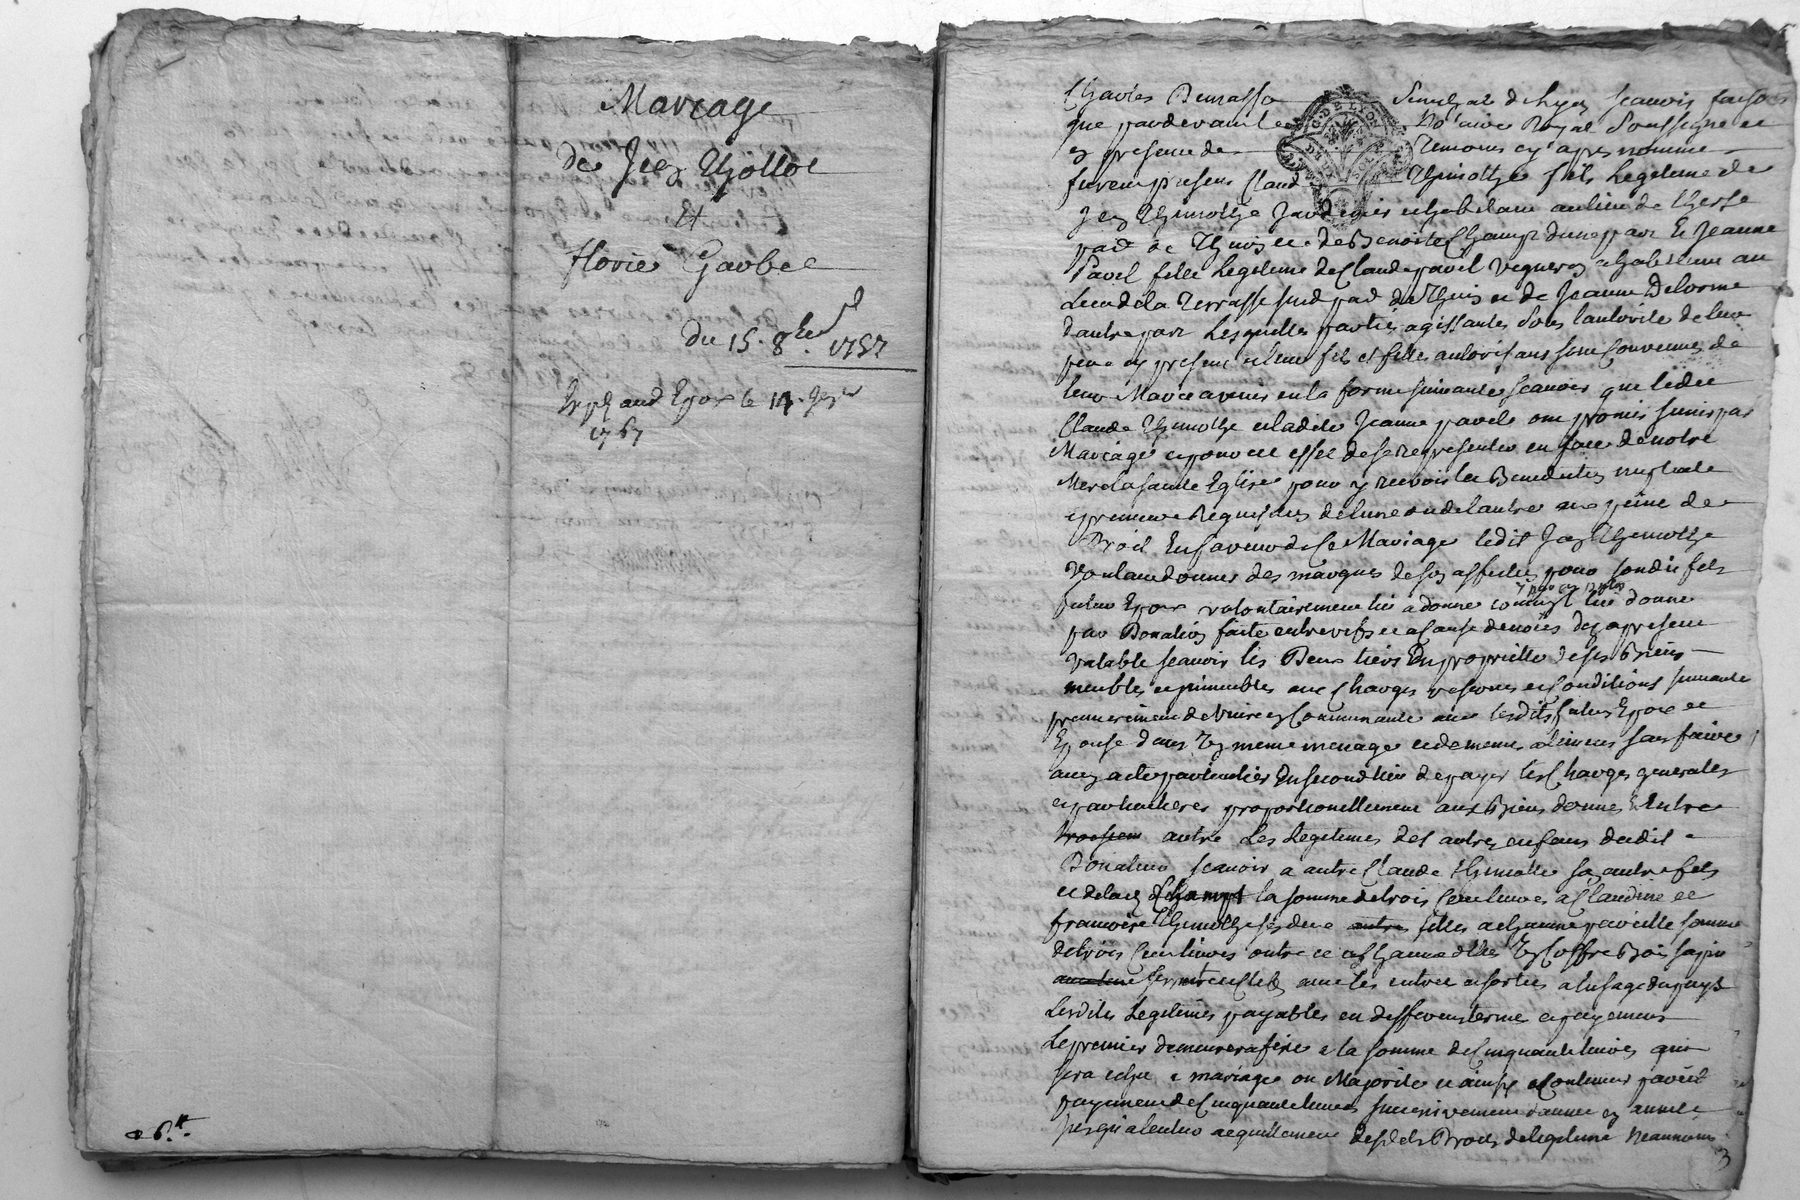 Mariage
de Jean Thollot
Et
florie Garbee
du 15. 8bre 1757
Expd aud Epox le 14.
1767
a 6.tt
Charles Demasso Senechal de Lyon scavoir faisons
que pardevant le No.aire Royal Soussigné et
en presence des Temoins cy apres nommes
furent presens Claude Thimothe fils legitime de
Jean Thimothe Jardinier et habitant au lieu de
par de Thuis et de Benoite Champ dune part Et Jeanne
Pavel fille legitime de Claude pavel vigneron et habitant au
Lieu de la Terrasse de Jeanne Delorme
dautre part Lesquelles parties agissantes Sous lautorité de leur
pere cy present et leur fils et fille autorisans sont Convenues de
leur Mariage en la forme suivante scavoir que ledit
Claude Thimothe et ladite Jeanne pavel ont promis sunir par
Mariage et pour cet effet de se representer en face de notre
Mere sainte Eglise pour y recevoir la Benediction nuptiale
a premiere Requisition de lune ou de lautre a peine de
Droit En faveur de ce Mariage ledit Jean Thimothe
voulant donner des marques de son affection pour son dit fils
futur Epoux volontairement lui a donné comme il lui donne
par Donation faite entre vifs et a Cause de noces des a present
valable scavoir les Deux tiers En proprieté de ses Biens
meubles et immeubles aux Charges reserves et Conditions suivante
premierement de vivre en Communauté avec lesdits futurs Epoux et
Epouse dans un meme menage et de memes alimens sans faire
aucun acte particulier En second lieu de payer les Charges generales
et particulieres proportionellement aux Biens donnés Entre
autre Les legitimes des autres enfans dudit
Donateur scavoir a autre Claude thimothe son autre fils
et de la la somme de trois Cent livres a Claudine et
francoise Thimothe ses deux autres filles a chacune pareille somme
de trois Cent livres outre ce a chacune delles un Coffre Bois sapin
fermant a Clef avec les entrée et sorties a lusage du pays
Lesdites legitimes payables en differens termes et payemens
Le premier demeurera fixé a la somme de Cinquante livres qui
sera echu a mariage ou Majorité et ainsy a Continuer pareil
payement de Cinquante livres successivement dannée en année
jusqu a lentier acquittement desdits Droits de legitime neanmoins
3